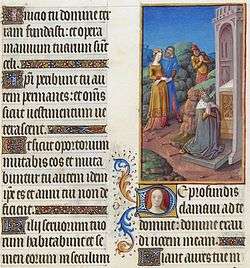 Inicio tu domine ter
ram fundasti. et opera
manuum tuarum sūt
celi.
Ipi peribunt tu au
tem permanes. et omēs
sicut vestimentum ve
terascent.
Et sicut opertorium
mutabis eos et muta
buntur tu autem idem
ipse es et anni tui non de
ficient.
Filij servorum tuo
rum habitabunt et se
men eorum in seculum
De profundis
clamavi ad te
domine: domine exau
di vocem meam.
Fiant aures tue in